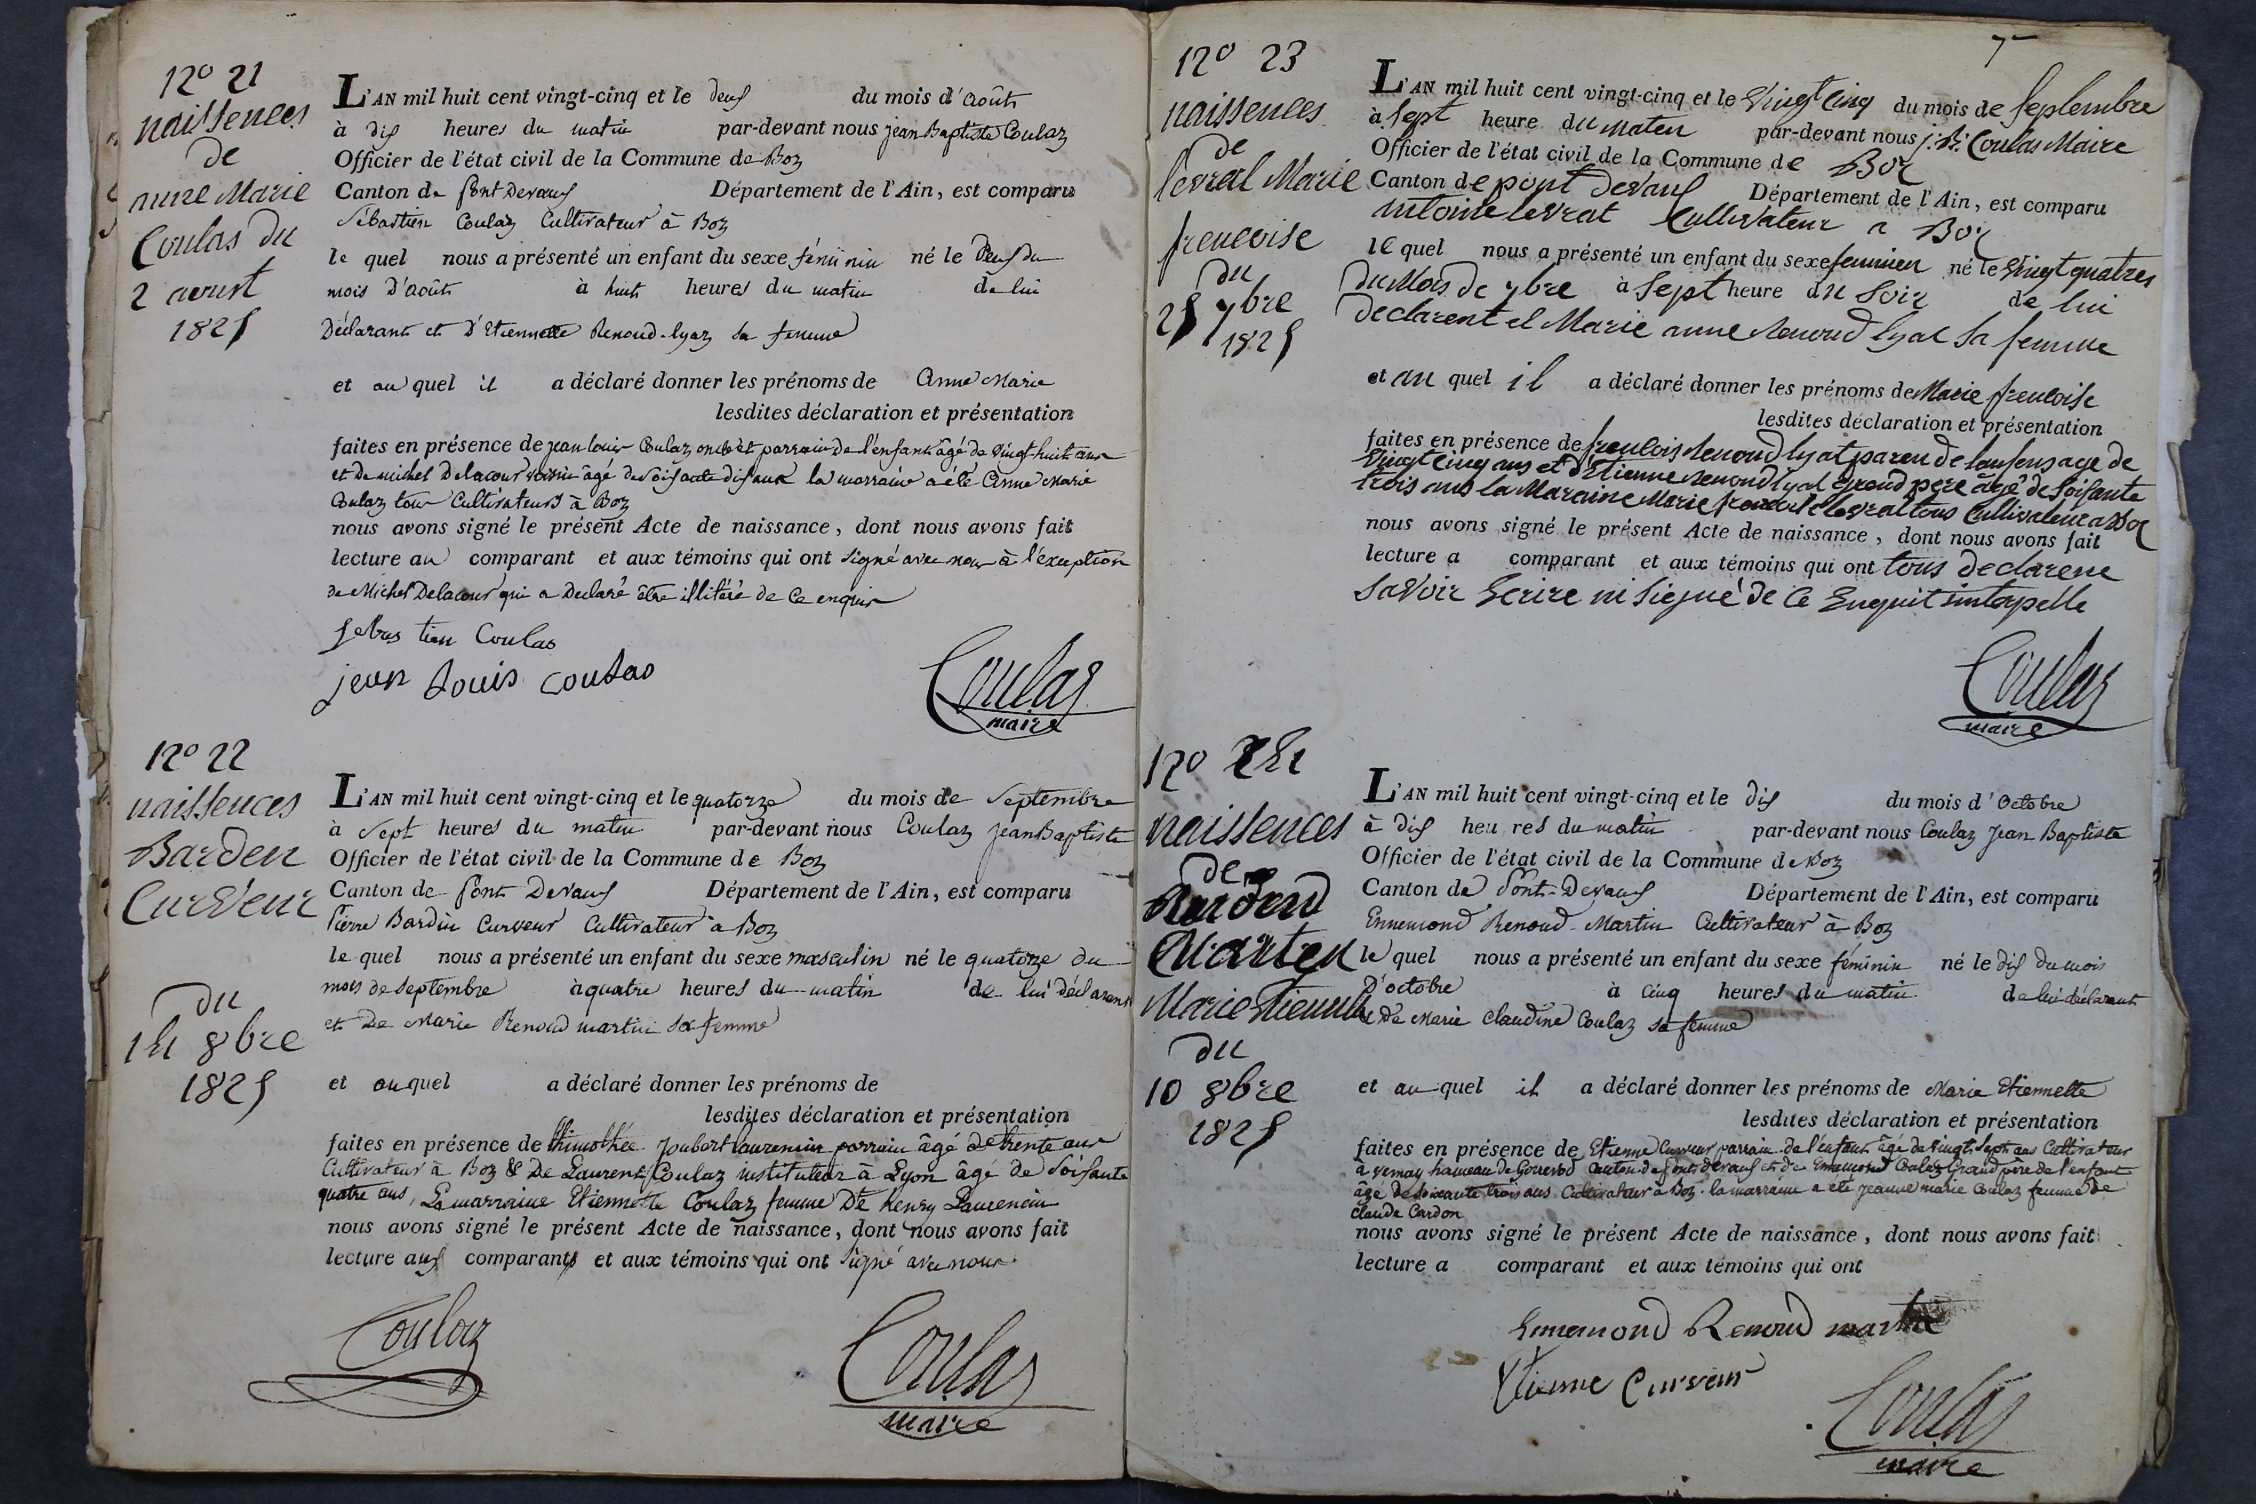 N° 21
naissences
de
anne Marie
Coulas du
2 aoust
1825
L'AN mil huit cent vingt-cinq et le deux du mois d'août
à dix heures du matin par-devant nous jean Baptiste Coulaz
Officier de l'état civil de la Commune de Boz
Canton de Pont Devaux Département de l'Ain, est comparu
Sébastien Coulaz Cultivateur à Boz
le quel nous a présenté un enfant du sexe féminin né le Deux du
mois d'août à huit heures du matin de lui
Déclarant et d'Etiennette Renoud-lyaz sa femme
et au quel il a déclaré donner les prénoms de Anne Marie
lesdites déclaration et présentation
faites en présence de jean louis Coulaz oncle et parrain de l'enfant âgé de vingt-huit ans
et de michel Delacour voisin âgé de Soixante dix ans la marraine a élé Anne Marie
Coulaz tous Cultivateurs à Boz
nous avons signé le présent Acte de naissance, dont nous avons fait
lecture au comparant et aux témoins qui ont signé avec nous à l'exception
de Michel Delacour qui a Declaré être illitéré de ce enquis
Sebas tien Coulas
jean Louis coulas
Coulaz
maire
N° 22
naissences
Barden
Curveur
du
14 8bre
1825
L'AN mil huit cent vingt-cinq et le quatorze du mois de Septembre
à Sept heures du matin par-devant nous Coulaz Jean Baptiste
Officier de l'état civil de la Commune de Boz
Canton de Pont Devaux Département de l'Ain, est comparu
Pierre Bardin Curveur Cultivateur à Boz
le quel nous a présenté un enfant du sexe masculin né le quatorze du
mois de Septembre à quatre heures du matin de lui déclarant
et De Marie Renoud martin sa femme
et au quel a déclaré donner les prénoms de
lesdites déclaration et présentation
faites en présence de Thimothée Joubert laurencin parrain âgé de trente ans
Cultivateur à Boz & De Laurent Coulaz instituteur à Lyon âgé de Soixante
quatre ans, La marraine Etiennette Coulaz femme De henry Laurencin
nous avons signé le présent Acte de naissance, dont nous avons fait
lecture aux comparants et aux témoins qui ont signé avec nous
Coulaz
Coulas
maire
7
N° 23
naissences
de
levral Marie
frencoise
du
25 7bre
1825
L'AN mil huit cent vingt-cinq et le Vingt Cinq du mois de Septembre
à Sept heure du maten par-devant nous j. B. Coulas Maire
Officier de l'état civil de la Commune de Boz
Canton de pont devaux Département de l'Ain, est comparu
Antoine levrat Cultivateur a Boz
le quel nous a présenté un enfant du sexe feminien né le Vingt quatres
du Mois de 7bre à Sept heure du Soir de lui
declarent et Marie anne Renoud lyat sa femme
et au quel il a déclaré donner les prénoms de Marie frencoise
lesdites déclaration et présentation
faites en présence de frencois Renoud lyat paren de lenfens age de
Vingt Cinq ans et d'Etienne Renoud lyat grend pere âgé de Soixante
trois ans la Maraine Marie levrat tous Cultivateur a Boz
nous avons signé le présent Acte de naissance, dont nous avons fait
lecture a comparant et aux témoins qui ont tous declarene
saVoir Ecrire ni Siegné de Ce Enquit interpelle
Coulas
maire
N° 24
naissences
de
Marten
Marie Etiennette
du
10 8bre
1825
L'AN mil huit cent vingt-cinq et le dix du mois d'Octobre
à dix heu res du matin par-devant nous Coulaz Jean Baptiste
Officier de l'état civil de la Commune de Boz
Canton de Pont-Devaux Département de l'Ain, est comparu
Ennemond Renoud-Martin Cultivateur à Boz
le quel nous a présenté un enfant du sexe féminin né le dix du mois
D'octobre à cinq heures du matin de lui déclarant
& De Marie Claudine Coulaz sa femme
et au quel il a déclaré donner les prénoms de Marie Etiennette
lesdites déclaration et présentation
faites en présence de Etienne Curveur parrain de l'enfant âgé de vingt Sept ans Cultivateur
à hameau de Gorrevod Canton de Pont devaux et de Ennemond Coulaz Grand père de l'enfant
âgé de Soixante trois ans Cultivateur à Boz. la marraine a été Jeanne marie Coulaz femme de
Claude Cardon
nous avons signé le présent Acte de naissance, dont nous avons fait
lecture a comparant et aux témoins qui ont
Ennemond Renoud martin
Etienne Curveur
Coulas
maire